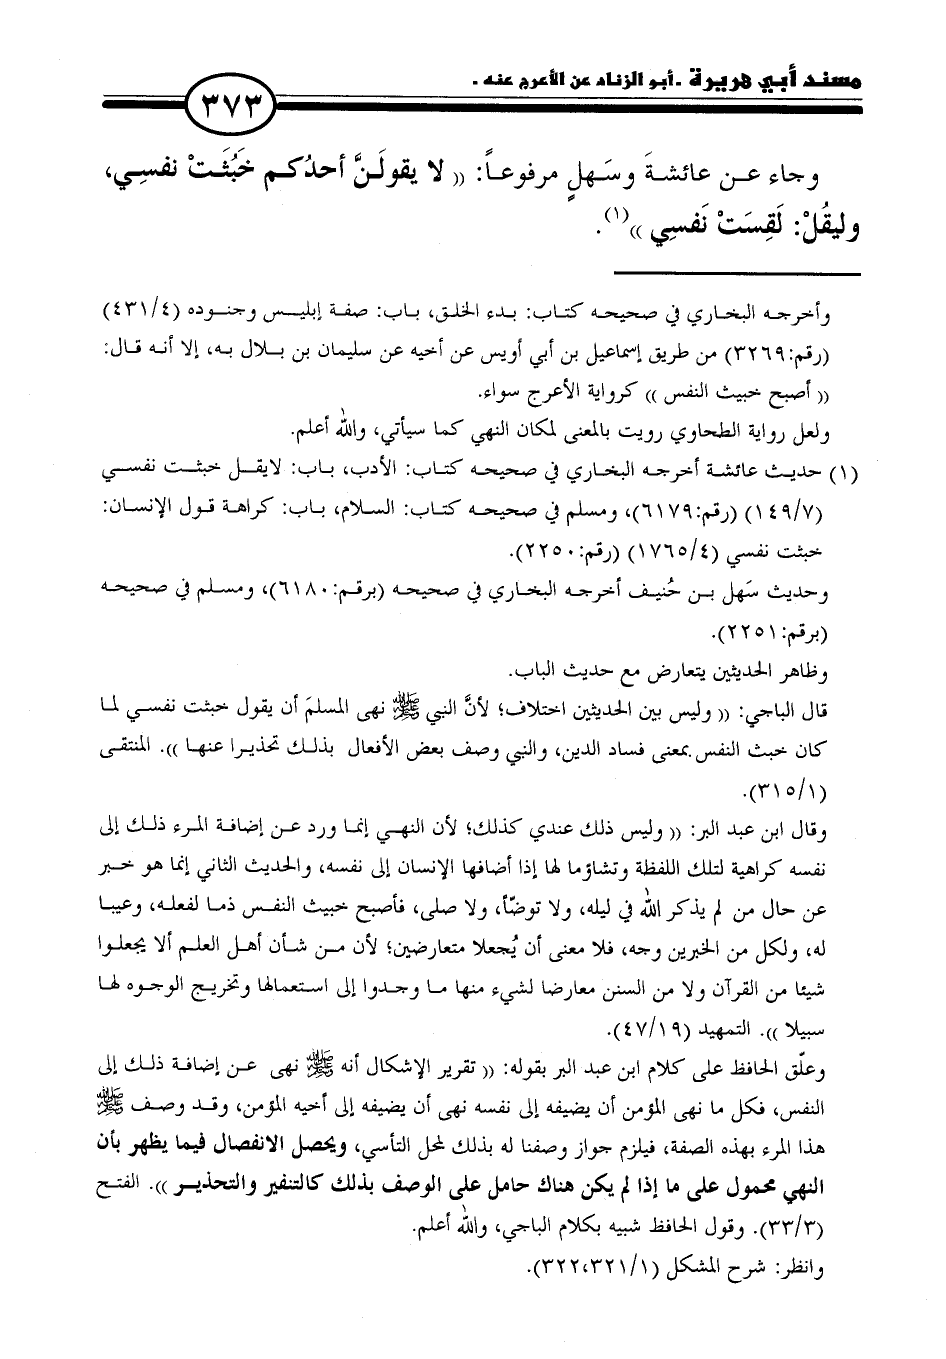 مسند أبي هريرة ـ أبو الزناد عن الأعرج عنه ـ
٣٧٣
وجاء عن عائشةَ وسَهلٍ مرفوعاً: (( لا يقولَنَّ أحدُكم خَبُثَتْ نفسِي،
وليقُلْ: لَقِسَتْ نَفسِي ))(١).
وأخرجه البخاري في صحيحه كتاب: بدء الخلق، باب: صفة إبليس وجنوده (٤٣١/٤)
(رقم:٣٢٦٩) من طريق إسماعيل بن أبي أويس عن أخيه عن سليمان بن بلال به، إلا أنه قال:
(( أصبح خبيث النفس )) كرواية الأعرج سواء.
ولعل رواية الطحاوي رويت بالمعنى لمكان النهي كما سيأتي، والله أعلم.
(١) حديث عائشة أخرجه البخاري في صحيحه كتاب: الأدب، باب: لايقل خبثت نفسي
(١٤٩/٧) (رقم:٦١٧٩)، ومسلم في صحيحه كتاب: السلام، باب: كراهة قول الإنسان:
خبثت نفسي (١٧٦٥/٤) (رقم:٢٢٥٠).
وحديث سَهل بن حُنيف أخرجه البخاري في صحيحه (برقم:٦١٨٠)، ومسلم في صحيحه
(برقم:٢٢٥١).
وظاهر الحديثين يتعارض مع حديث الباب.
قال الباجي: (( وليس بين الحديثين اختلاف؛ لأنَّ النبي ﷺ نهى المسلمَ أن يقول خبثت نفسي لما
كان خبث النفس بمعنى فساد الدين، والنبي وصف بعض الأفعال بذلك تحذيرا عنها )). المنتقى
(٣١٥/١).
وقال ابن عبد البر: (( وليس ذلك عندي كذلك؛ لأن النهي إنما ورد عن إضافة المرء ذلك إلى
نفسه كراهية لتلك اللفظة وتشاؤما لها إذا أضافها الإنسان إلى نفسه، والحديث الثاني إنما هو خبر
عن حال من لم يذكر الله في ليله، ولا توضّأ، ولا صلى، فأصبح خبيث النفس ذما لفعله، وعيبا
له، ولكل من الخبرين وجه، فلا معنى أن يُجعلا متعارضين؛ لأن من شأن أهل العلم ألا يجعلوا
شيئا من القرآن ولا من السنن معارضا لشيء منها ما وجدوا إلى استعمالها وتخريج الوجوه لها
سبيلا )). التمهيد (٤٧/١٩).
وعلّق الحافظ على كلام ابن عبد البر بقوله: (( تقرير الإشكال أنه ﷺ نهى عن إضافة ذلك إلى
النفس، فكل ما نهى المؤمن أن يضيفه إلى نفسه نهى أن يضيفه إلى أخيه المؤمن، وقد وصف ﷺ
هذا المرء بهذه الصفة، فيلزم جواز وصفنا له بذلك لمحل التأسي، ويحصل الانفصال فيما يظهر بأن
النهي محمول على ما إذا لم يكن هناك حامل على الوصف بذلك كالتنفير والتحذير )). الفتح
(٣٣/٣). وقول الحافظ شبيه بكلام الباجي، والله أعلم.
وانظر: شرح المشكل (٣٢٢،٣٢١/١).